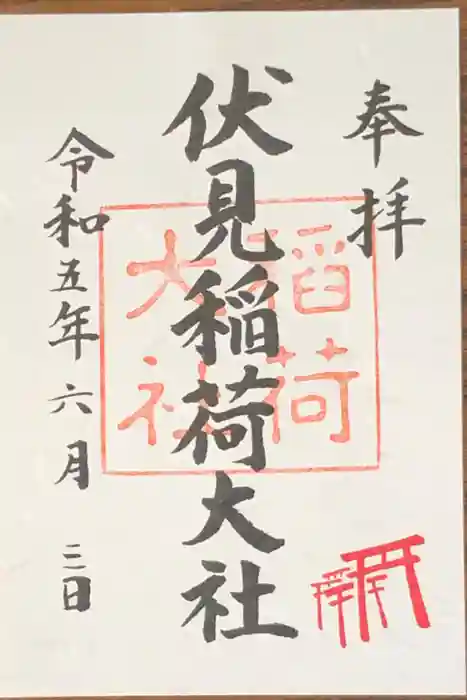 奉拝
伏見稲荷大社
稲荷大社
令和五年六月三日